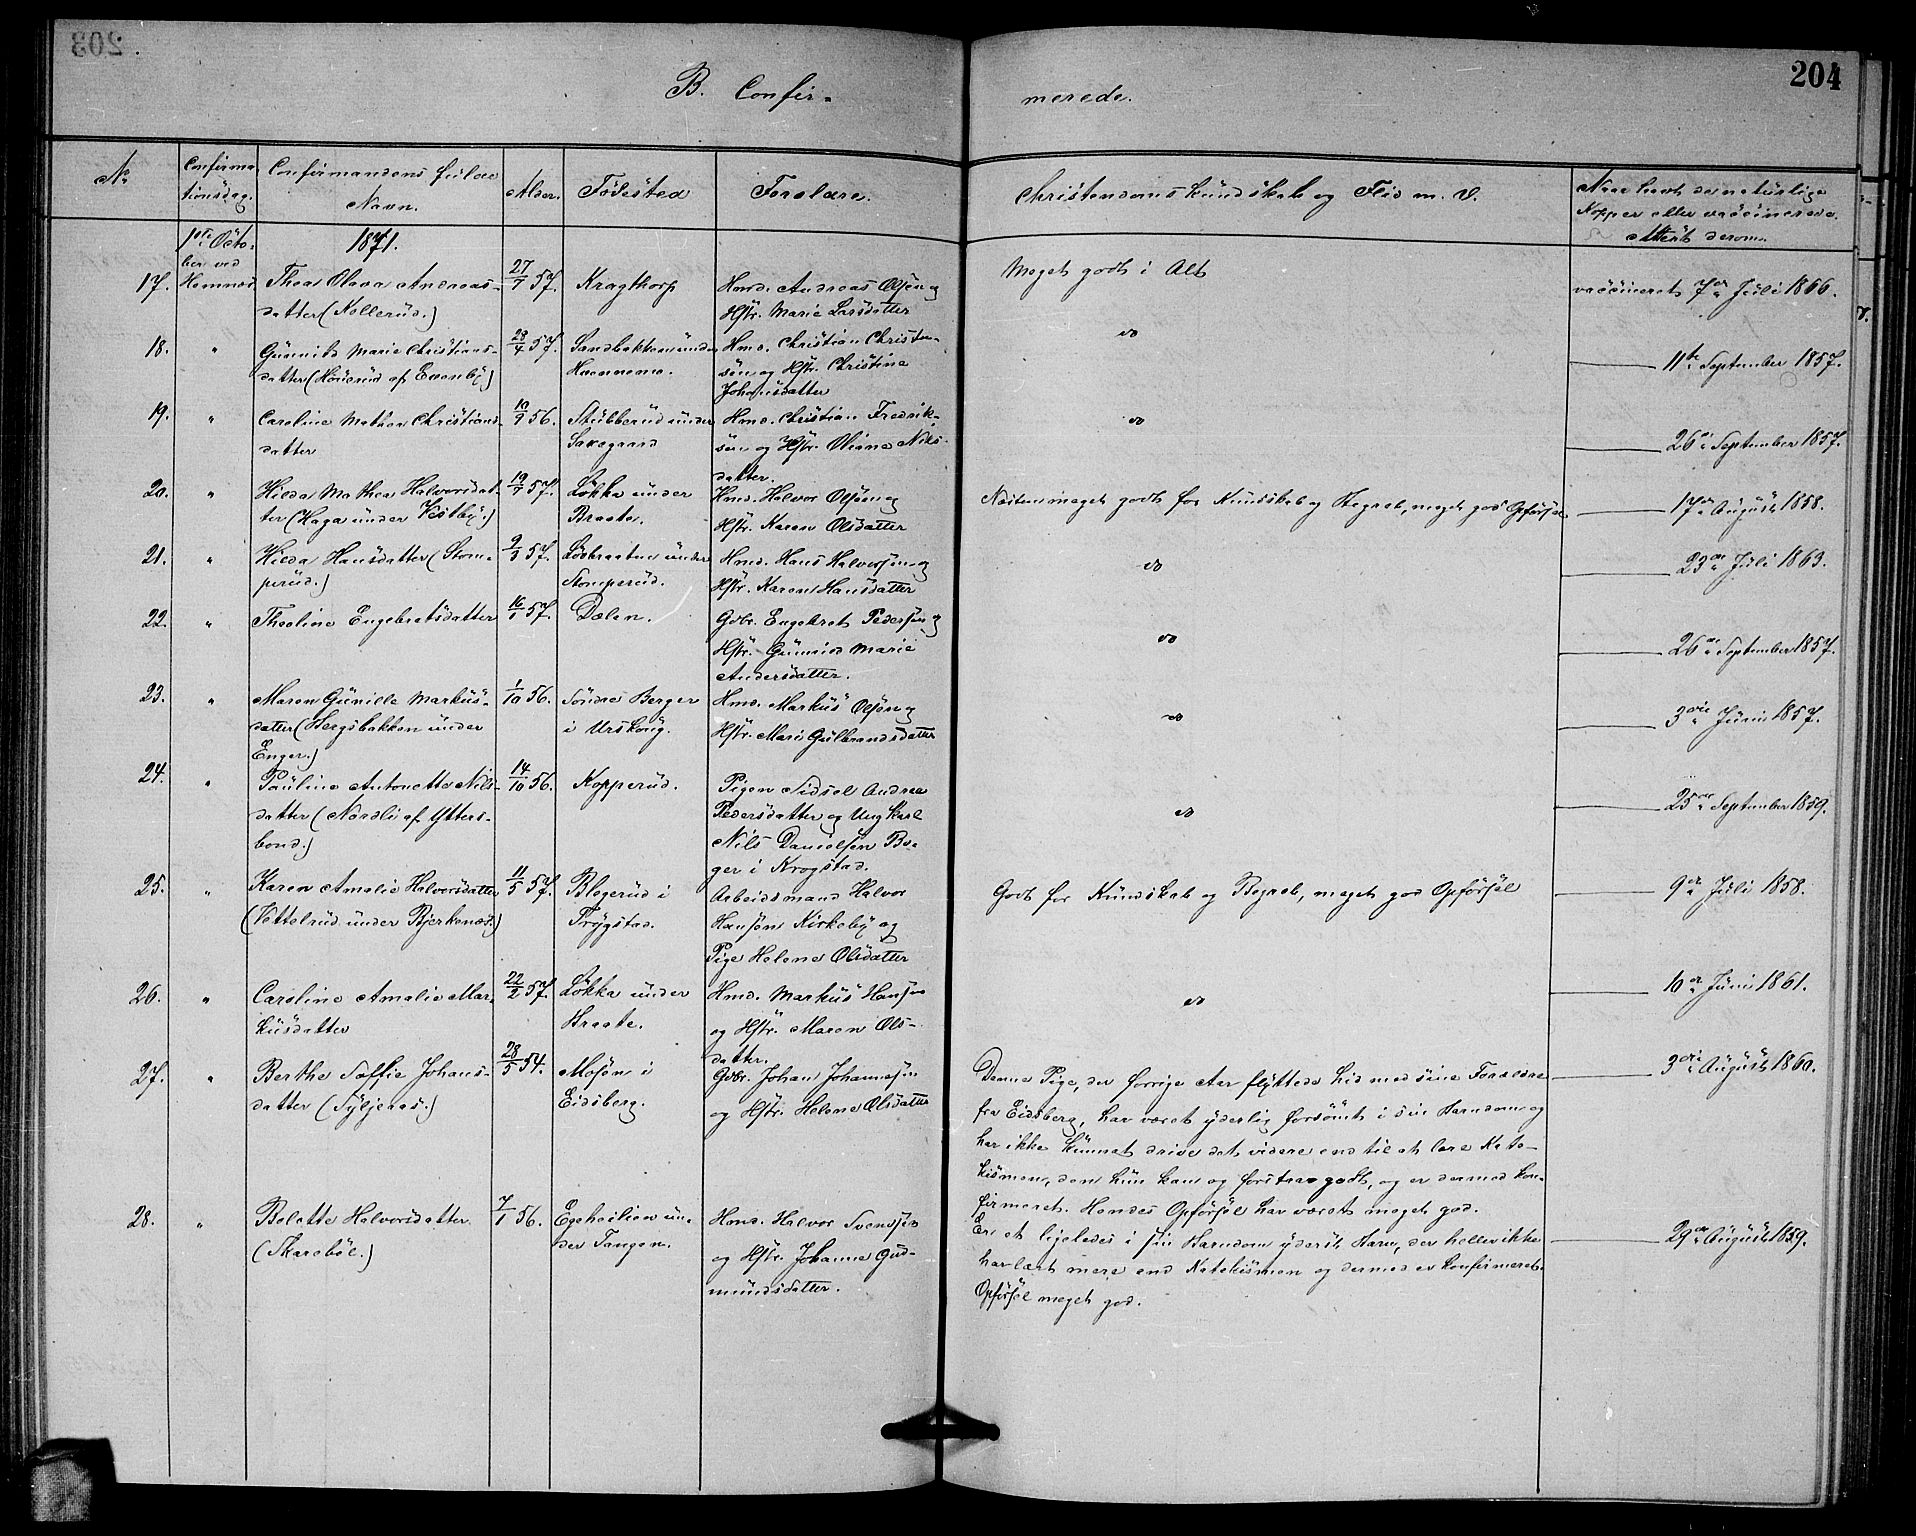 204
B. Confir-
merede.
No
Confirma-
tionsdag.
Confirmandens fulde
Navn.
Alder.
Fødested
Forældre.
Christendoms Kundskab og Flid m. v.
Naar havt de naturlige
Kopper eller vaccinerede.
Attest derom.
1ste Octo-
ber ved
Hemnæs
1871.
17.
Thea Olava Andreas-
datter (Kollerud.)
27/7 57.
Kragthorp
Hmd. Andreas Olsen og
Hstr. Marie Larsdatter
Meget godt i Alt
vaccineret 7de Juli 1866.
18.
"
Gunnild Marie Christians-
datter
28/4 57.
Sandbakken under
Hmd. Christian Christen-
sen og Hstr. Christine
Johansdatter
do
11te September 1857.
19.
"
Caroline Mathea Christians-
datter
10/9 56.
Stubberud under
Hmd. Christian Fredrik-
sen og Hstr. Oliane Nils-
datter.
do
26de September 1857.
20.
"
Hilda Mathea Halvorsdat-
ter (Haga under Vestby.)
19/7 57.
Løkka under
Braate.
Hmd. Halvor Olsen og
Hstr. Karen Olsdatter
Næsten meget godt for Kundskab og Begreb, meget god Opførsel
17de August 1858.
21.
"
Hilda Hansdatter (Stom-
perud.)
9/3 57.
Løbraaten under
Stomperud.
Hmd. Hans Halvorsen og
Hstr. Karen Hansdatter
do
23de Juli 1863.
22.
"
Theoline Engebretsdatter
16/1 57.
Dælen.
Gbr. Engebret Pedersen og
Hstr. Gunnild Marie
Andersdatter.
do
26de September 1857.
23.
"
Maren Gunille Markus-
datter (Bergsbakken under
Enger.)
1/10 56.
Søndre Berger
i Urskoug.
Hmd. Markus Olsen og
Hstr. Mari Gulbrandsdatter
do
3die Juni 1857.
24.
"
Pauline Antonette Nils-
datter (Nordli af Ytters-
bond.)
14/10 56.
Kopperud.
Pigen Sidsel Andrea
Pedersdatter og Ung Karl
Nils Danielsen Bø-
ger i Krogstad.
do
25de September 1859.
25.
"
Karen Amalie Halvorsdatter
(Vettelrud under Bjerkenæs.)
11/5 57.
Blegerud i
Trygstad.
Arbeidsmand Halvor
Hansen Kirkeby og
Pige Helene Olsdatter
Godt for Kundskab og Begreb, meget god Opførsel
9de Juli 1858.
26.
"
Caroline Amalie Mar-
kusdatter
22/2 57.
Løkka under
Braate.
Hmd. Markus Hansen
og Hstr. Maren Ols-
datter.
do
10de Juni 1861.
27.
"
Berthe Soffie Johans-
datter (Syljeraas.)
28/5 54.
Mosen i
Eidsberg.
Gbr. Johan Johannesen
og Hstr. Helene Olsdatter
Denne Pige, der forrige Aar flyttede hid med sine Forældre
fra Eidsberg, har været yderlig forsømt i sin Barndom og
har ikke kunnet drive det videre end til at lære Kate-
kismen, den hun kan og forstaar godt, og er dermed kon-
firmeret. Hendes Opførsel har været meget god.
3die August 1860.
28.
"
Bolette Halvorsdatter
(Skarebøl.)
7/1 56.
Egeheilien un-
der Tangen.
Hmd. Halvor Svendsen
og Hstr. Johanne Gud-
mundsdatter.
Er et ligeledes i sin Barndom Barn, der heller ikke
har lært mere end Katekismen og dermed er konfirmeret.
Opførsel meget god.
29de August 1859.